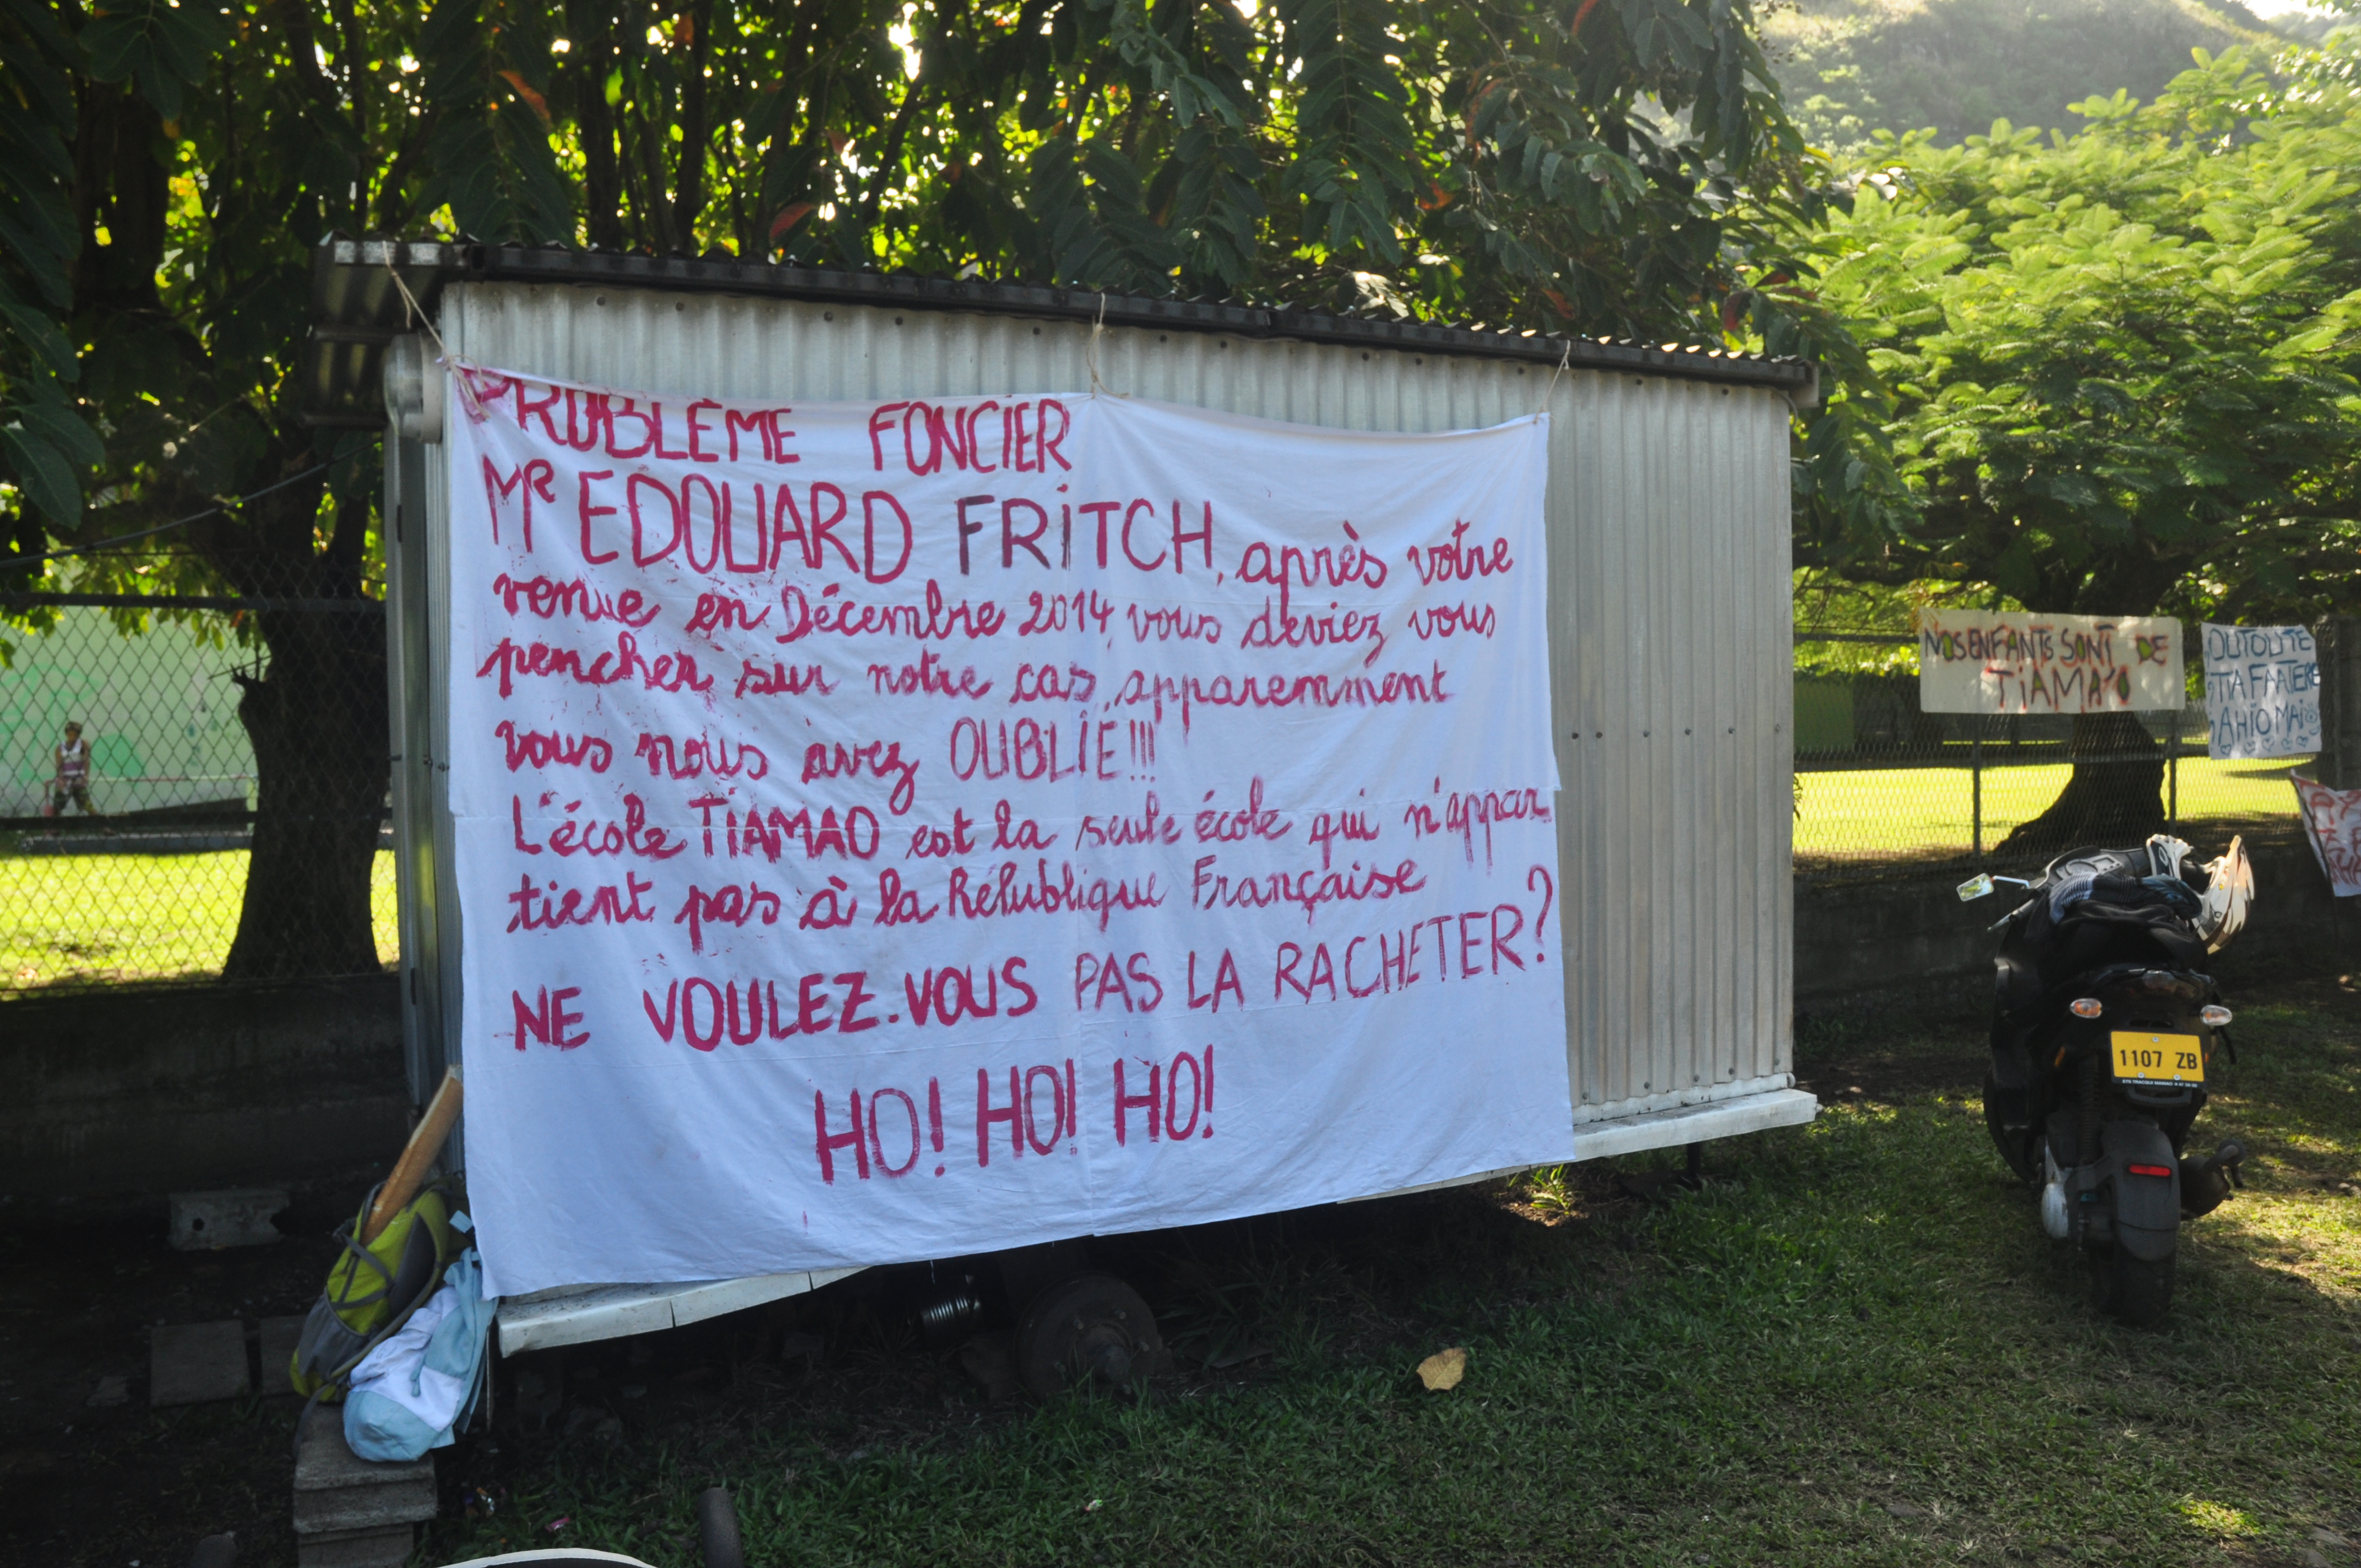 PROBLÈME FONCIER
Mr EDOUARD FRITCH, après votre
venue en Décembre 2014, vous deviez vous
pencher sur notre cas, apparemment
vous nous avez OUBLIÉ!!!
L'école TIAMAO est la seule école qui n'appar
tient pas à la Républiqie Française
NE VOULEZ-VOUS PAS LA RACHETER?
HO! HO! HO!
NOS ENFANTS SONT DE
TIAMA'O
OUTOUTE
TIA FAATERE
AHIO MAI
1107 ZB